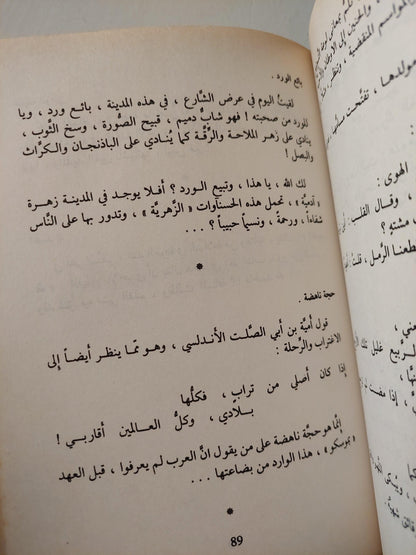 بائع الورد .
لقيتُ اليوم في عرض الشَّارع ، في هذه المدينة ، بائـع ورد ، ويا
للورد من صحبته ! فهو شابٌّ دميم ، قبيح الصُّورة ، وسخ الثَّوب ،
ينادي على زهـر الملاحة والرِّقَّة كما يُنـادي على البـاذنجـان والكرَّاث
والبصل !
لك الله ، يا هذا ، وتبيع الـورد ؟ أفـلا يوجـد في المدينـة زهـرة
« آدميَّة » ، تحمل هذه الحسناوات « الزَّهريَّة » ، وتدور بها على النَّاس
شفاءً ، ورحمةً ، ونسيماً حبيباً ؟ . . .
*
حجة ناهضة .
قول أُميَّة بن أبي الصَّلت الأندلسي ، وهو ممَّا ينظر أيضاً إلى
الاغتراب والرِّحلة :
إذا كان أصلي من ترابٍ ، فكلُّها
بـلادي ، وكلُّ العـالمين أقاربي !
إنَّما هو حجَّة ناهضة على من يقول انَّ العرب لم يعرفوا ، قبل العهد
، هذا الوارد من بضاعتها . . .
*
89
الهوى :
، وقال القلب :
مشته ؟
الرَّمل ، قلتُ